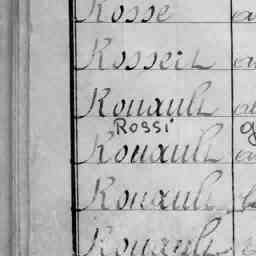 Rosse
Rosseil
Rouault
Rossi
Rouault
Rouault
Rouault